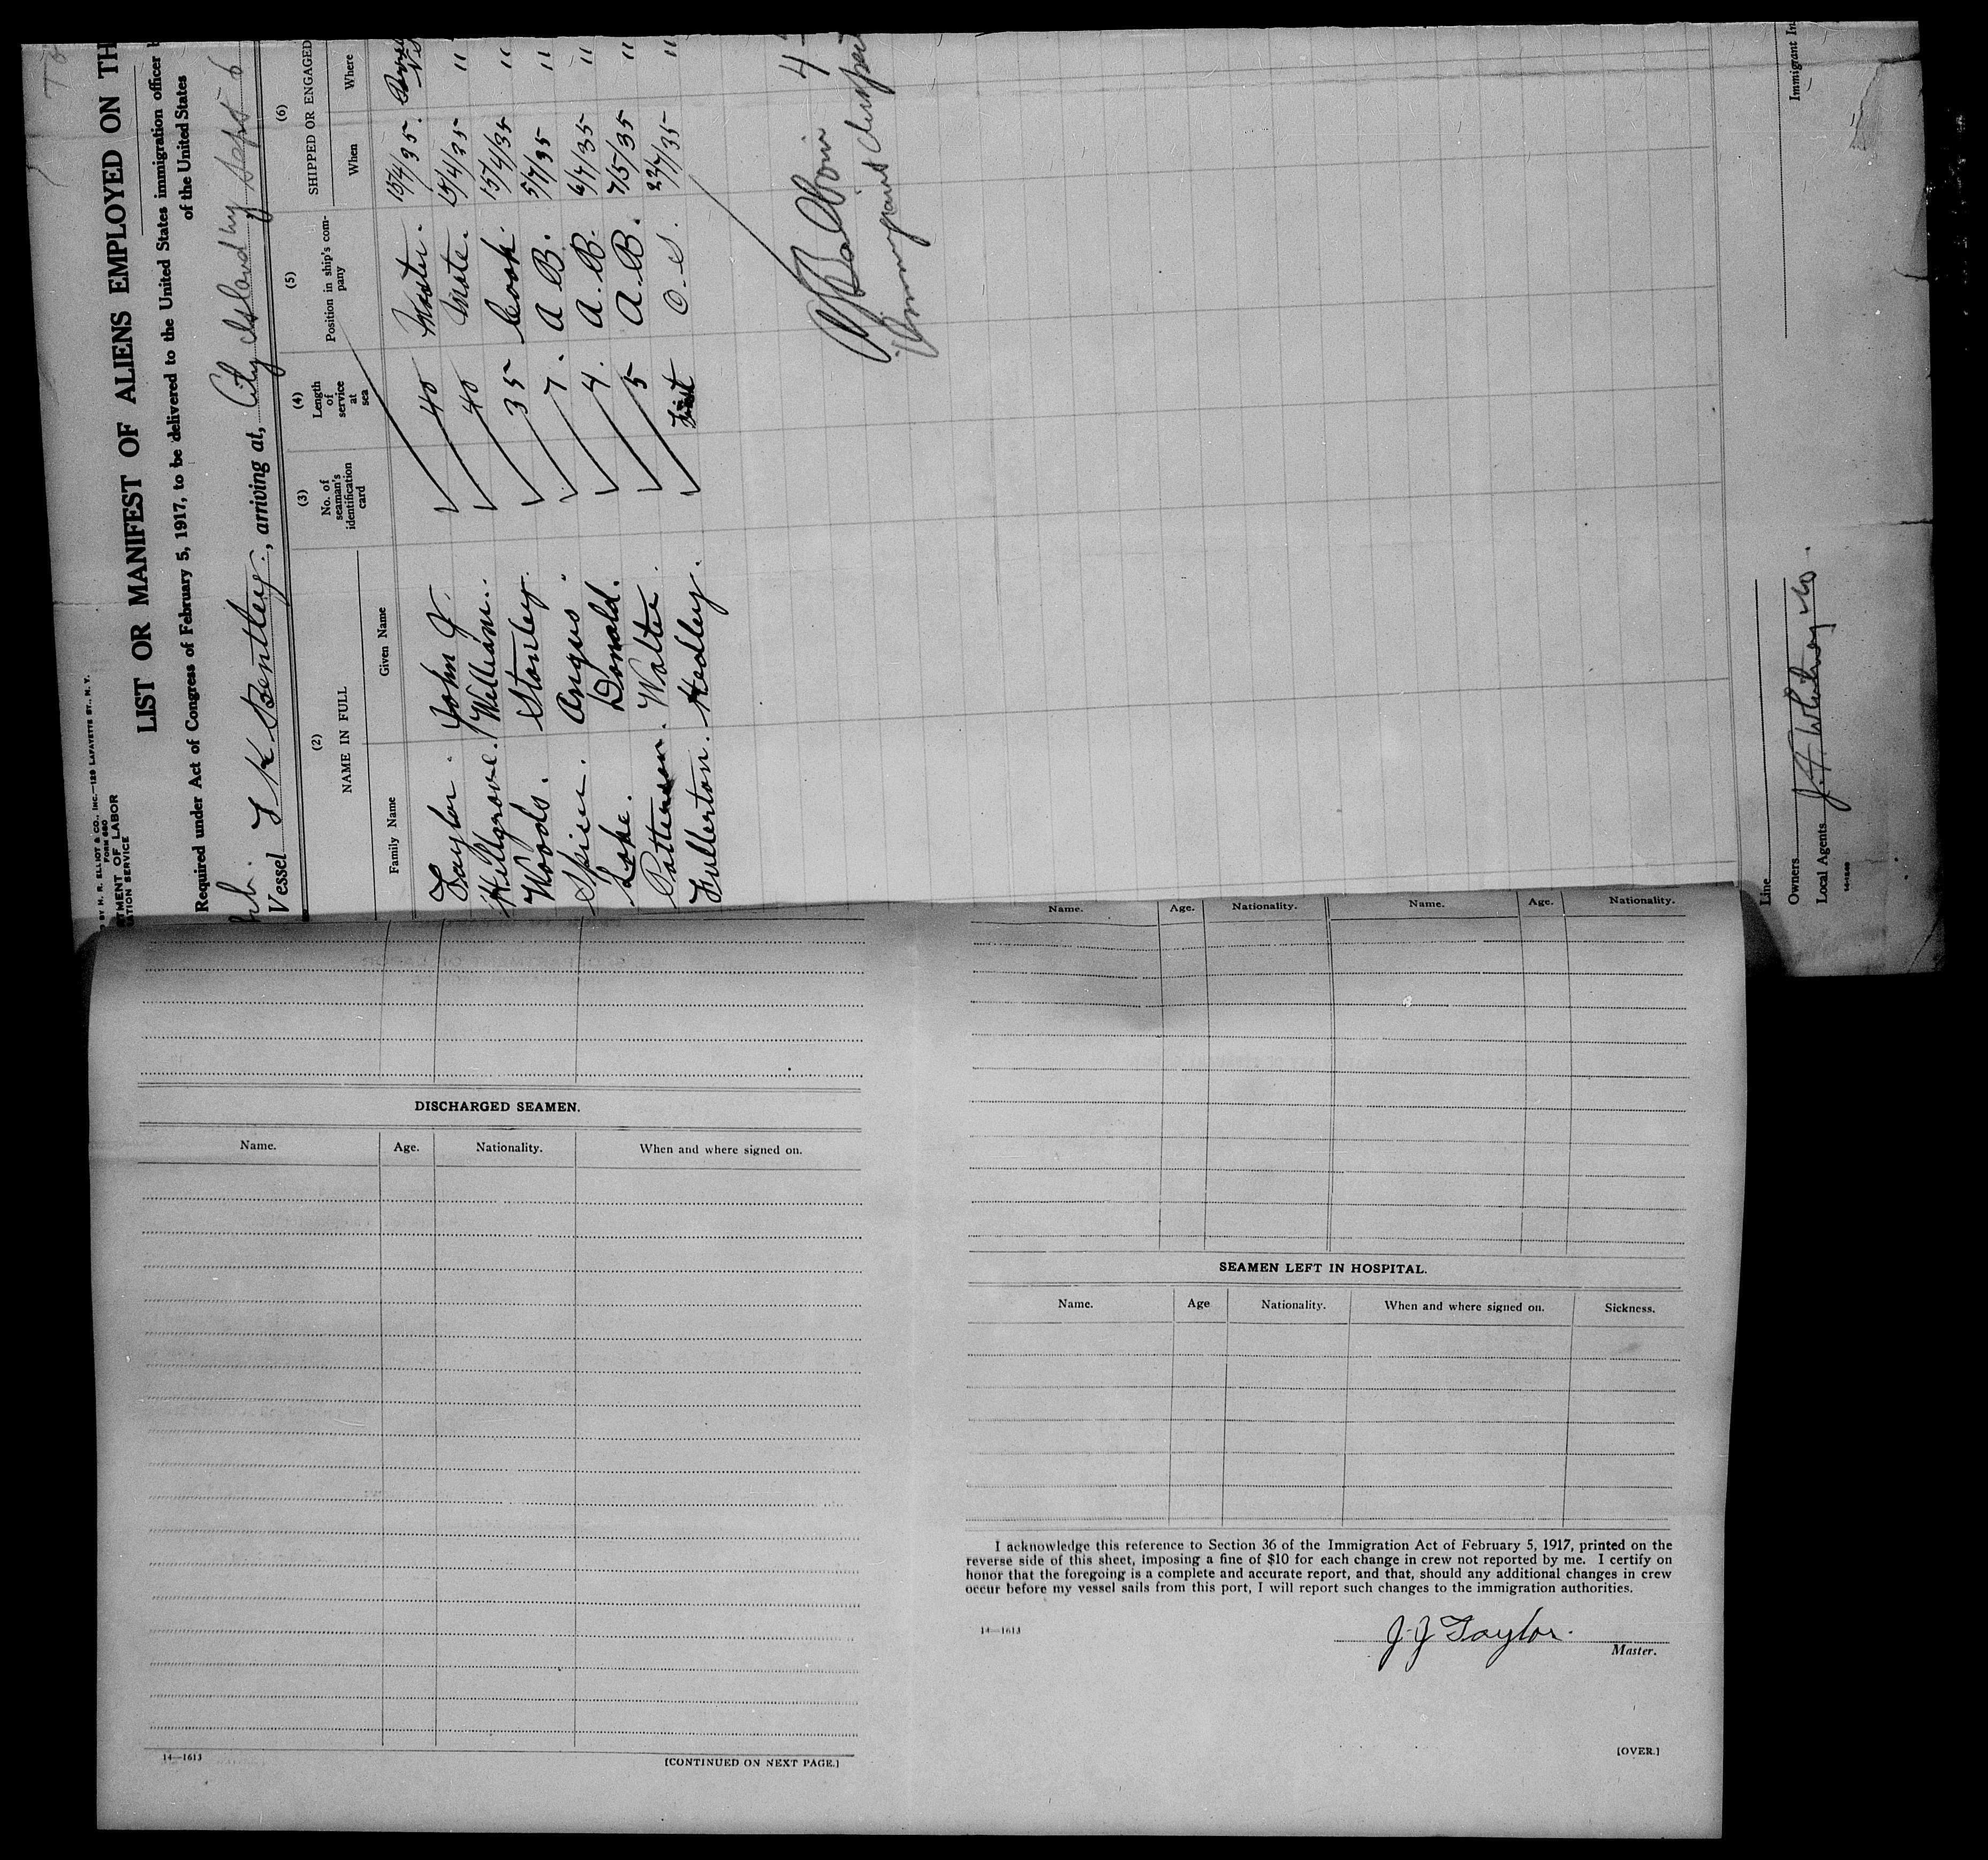 BY H. R. ELLIOT & CO., INC.—129 LAFAYETTE ST., N.Y.
FORM 680
TMENT OF LABOR
ATION SERVICE
LIST OR MANIFEST OF ALIENS EMPLOYED ON TH
Required under Act of Congress of February 5, 1917, to be delivered to the United States immigration officer
of the United States
Vessel K Bentley, arriving at, City Island by Sept 6
(2) (3) (4) (5) (6)
NAME IN FULL No. of seaman's identification card Length of service at sea Position in ship's company SHIPPED OR ENGAGED
Family Name Given Name When Where
Taylor. John J. 40 Master. 15/4/35.
Hellgrove. William. 40 Mate. 15/4/35 "
Woods. Stanley. 35 Cook. 15/4/35 "
Angus 7. A B. 5/7/35 "
Donald. 4. A.B. 6/7/35 "
Patterson. Walter. 5 A.B. 7/5/35 "
Fullerton. Hedley. First O.S. "
4
Immigrant Inspect
Line
Owners
Local Agents
14-1540
Immigrant In
DISCHARGED SEAMEN.
Name. Age. Nationality. When and where signed on.
14—1613 [CONTINUED ON NEXT PAGE.]
Name. Age. Nationality. Name. Age. Nationality.
SEAMEN LEFT IN HOSPITAL.
Name. Age Nationality. When and where signed on. Sickness.
I acknowledge this reference to Section 36 of the Immigration Act of February 5, 1917, printed on the
reverse side of this sheet, imposing a fine of $10 for each change in crew not reported by me. I certify on
honor that the foregoing is a complete and accurate report, and that, should any additional changes in crew
occur before my vessel sails from this port, I will report such changes to the immigration authorities.
14—1613
J J Taylor.
Master.
[OVER.]